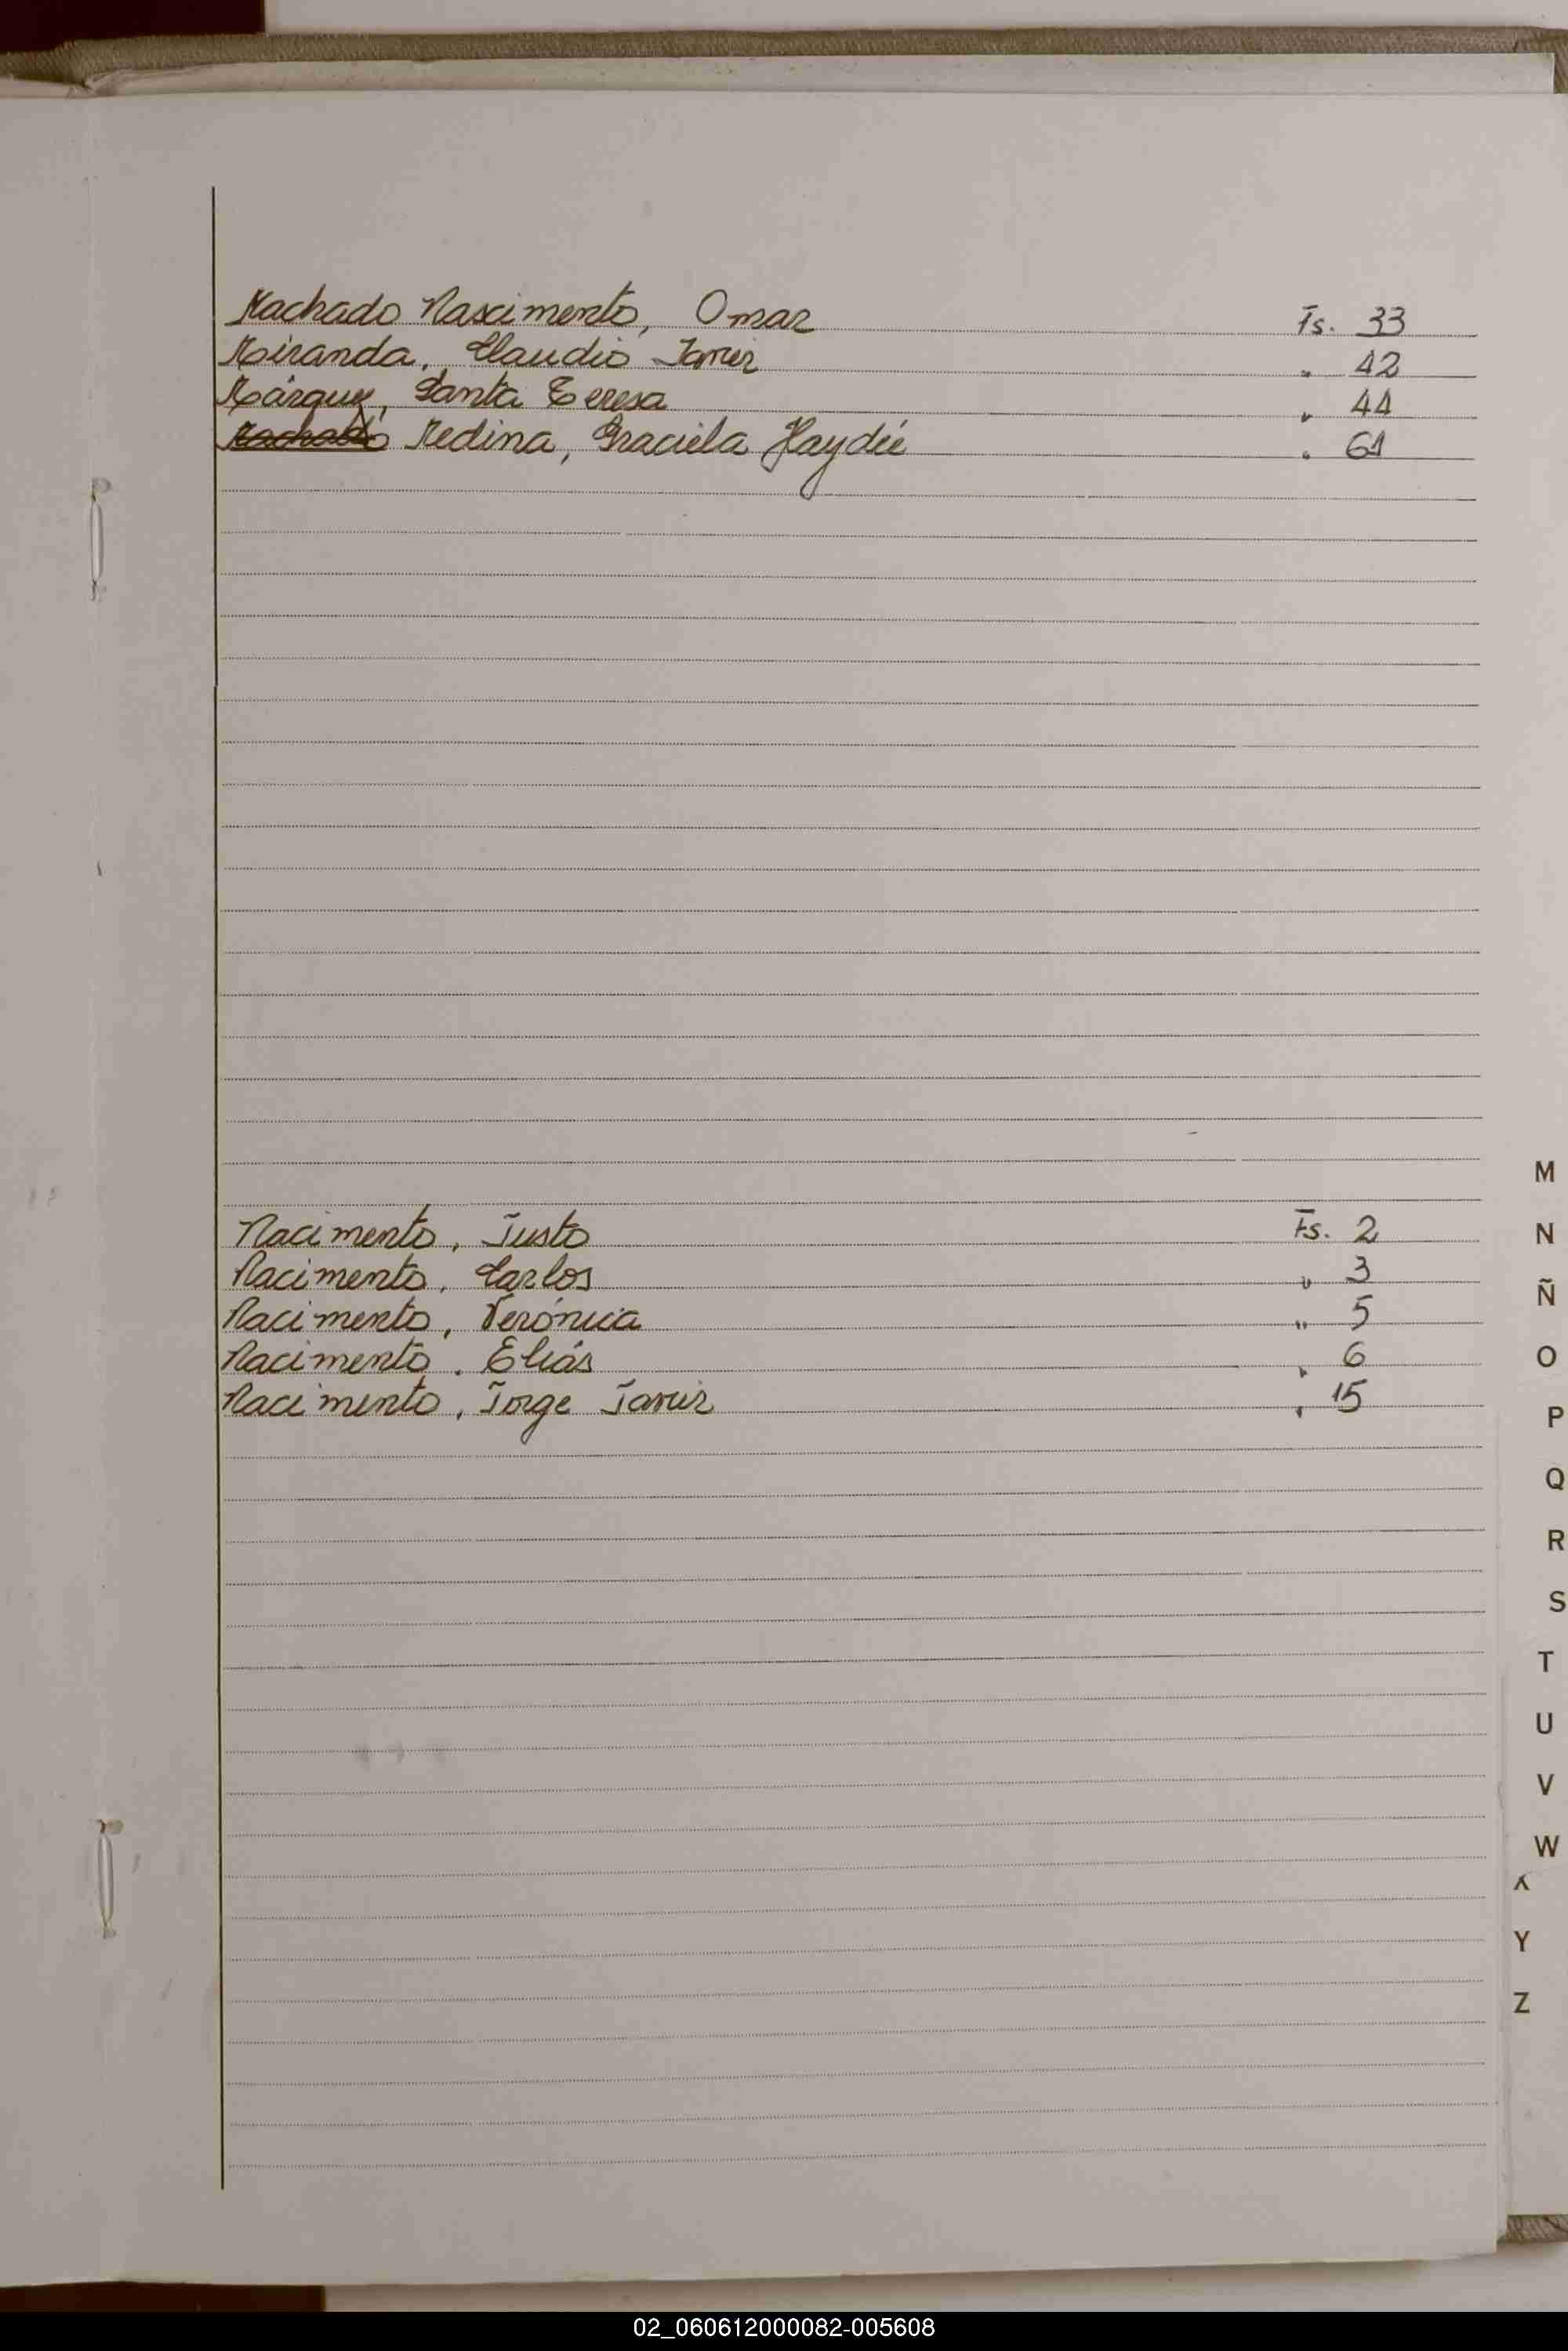 Machado Nascimento, Omar Fs. 33
Miranda, Claudio Javier " 42
Márquez, Santa Teresa " 44
Machado Medina, Graciela Haydée " 61
Nacimento, Justo Fs. 2
Nacimento, Carlos " 3
Nacimento, Verónica " 5
Nacimento, Eliás " 6
Nacimento, Jorge Javier " 15
M
N
Ñ
O
P
Q
R
S
T
U
V
W
X
Y
Z
02_060612000082-005608